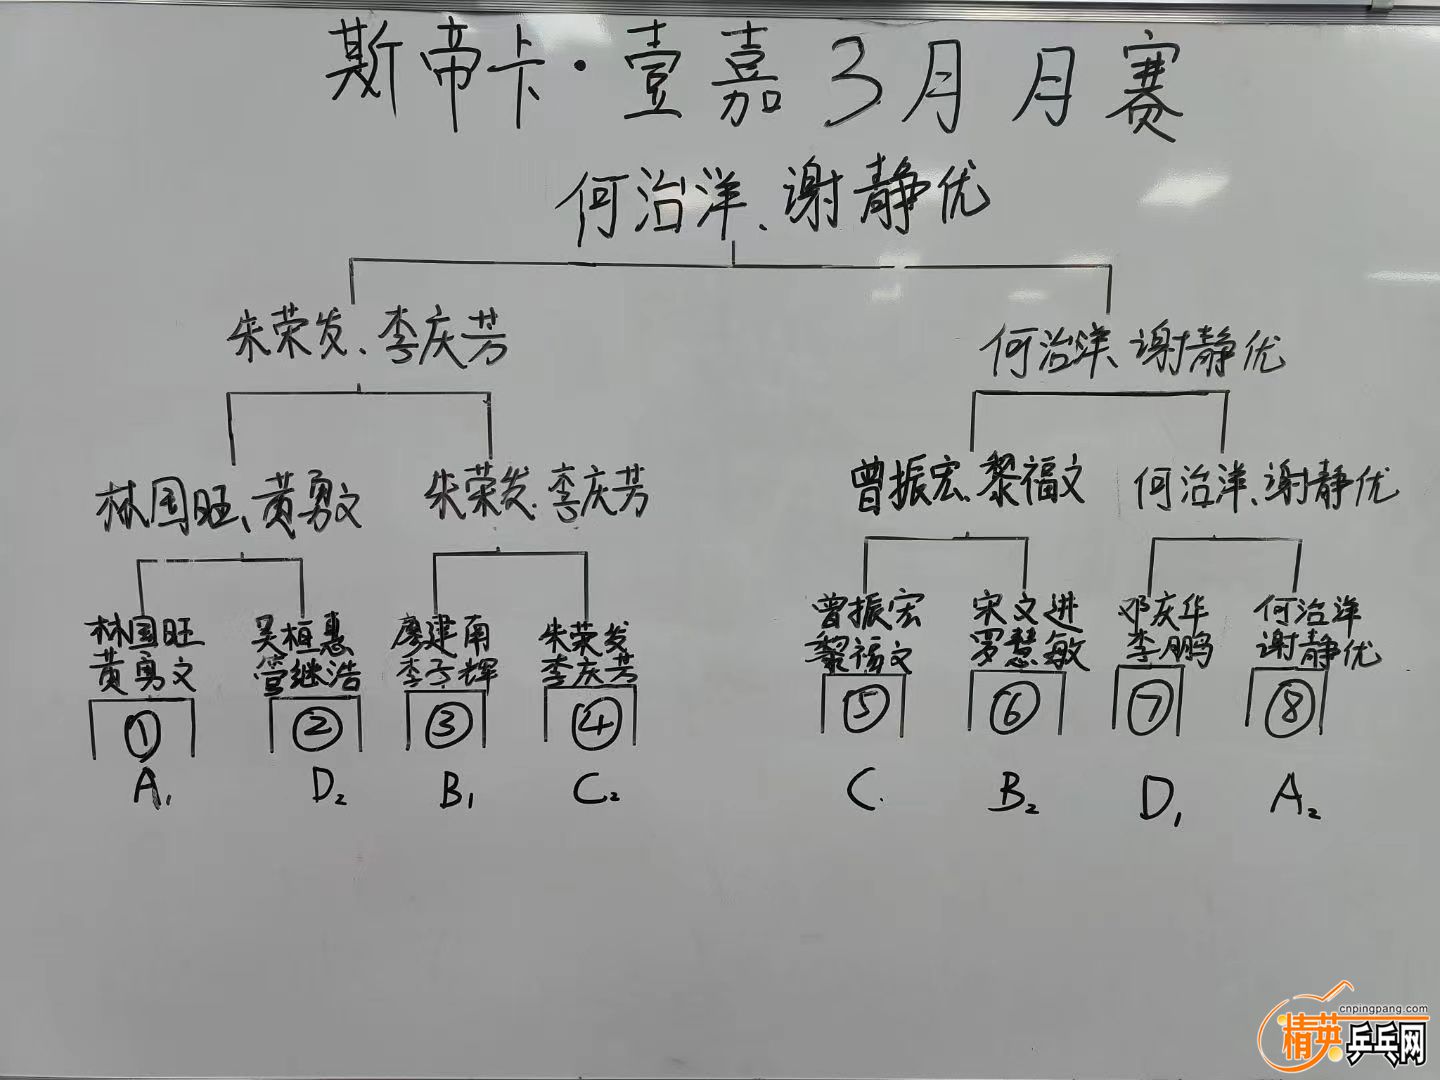 斯帝卡·壹嘉3月月赛
何治洋、谢静优
朱荣发、李庆芳
何治洋、谢静优
林国旺、黄勇文
朱荣发、李庆芳
曾振宏、黎福文
何治洋、谢静优
林国旺
黄勇文
吴桓惠
管继浩
廖建南
李子辉
朱荣发
李庆芳
曾振宏
黎福文
宋文进
罗慧敏
邓庆华
李鹏
何治洋
谢静优
①
②
③
④
⑤
⑥
⑦
⑧
A1
D2
B1
C2
C.
B2
D1
A2
cnpingpang.com
精英乒乓网